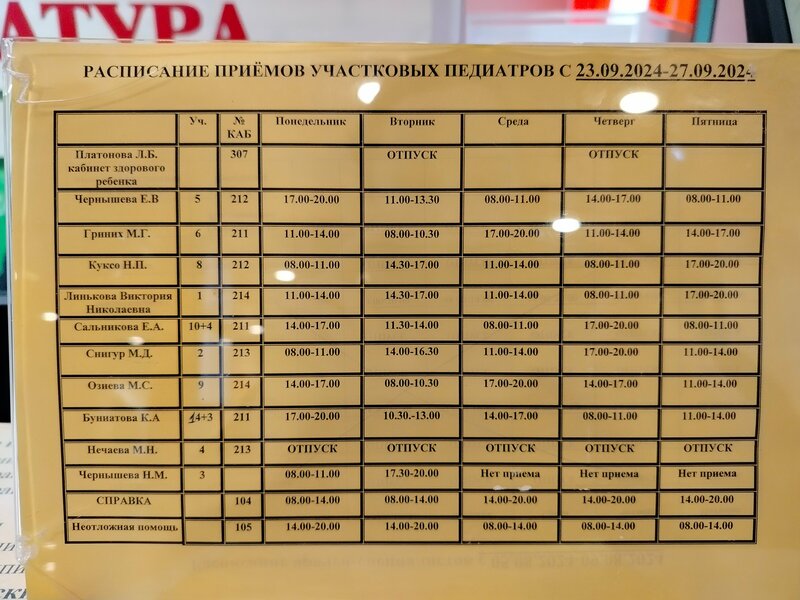 АТУРА
РАСПИСАНИЕ ПРИЁМОВ УЧАСТКОВЫХ ПЕДИАТРОВ С 23.09.2024-27.09.2024
Уч. № КАБ Понедельник Вторник Среда Четверг Пятница
Платонова Л.Б. кабинет здорового ребенка 307 ОТПУСК ОТПУСК
Чернышева Е.В 5 212 17.00-20.00 11.00-13.30 08.00-11.00 14.00-17.00 08.00-11.00
Гриних М.Г. 6 211 11.00-14.00 08.00-10.30 17.00-20.00 11.00-14.00 14.00-17.00
Куксо Н.П. 8 212 08.00-11.00 14.30-17.00 11.00-14.00 08.00-11.00 17.00-20.00
Линькова Виктория Николаевна 1 214 11.00-14.00 14.30-17.00 11.00-14.00 08.00-11.00 17.00-20.00
Сальникова Е.А. 10+4 211 14.00-17.00 11.30-14.00 08.00-11.00 17.00-20.00 08.00-11.00
Снигур М.Д. 2 213 08.00-11.00 14.00-16.30 11.00-14.00 17.00-20.00 11.00-14.00
Озиева М.С. 9 214 14.00-17.00 08.00-10.30 17.00-20.00 14.00-17.00 11.00-14.00
Буниатова К.А 14+3 211 17.00-20.00 10.30.-13.00 14.00-17.00 08.00-11.00 11.00-14.00
Нечаева М.Н. 4 213 ОТПУСК ОТПУСК ОТПУСК ОТПУСК ОТПУСК
Чернышева Н.М. 3 08.00-11.00 17.30-20.00 Нет приема Нет приема Нет приема
СПРАВКА 104 08.00-14.00 08.00-14.00 14.00-20.00 14.00-20.00 14.00-20.00
Неотложная помощь 105 14.00-20.00 14.00-20.00 08.00-14.00 08.00-14.00 08.00-14.00